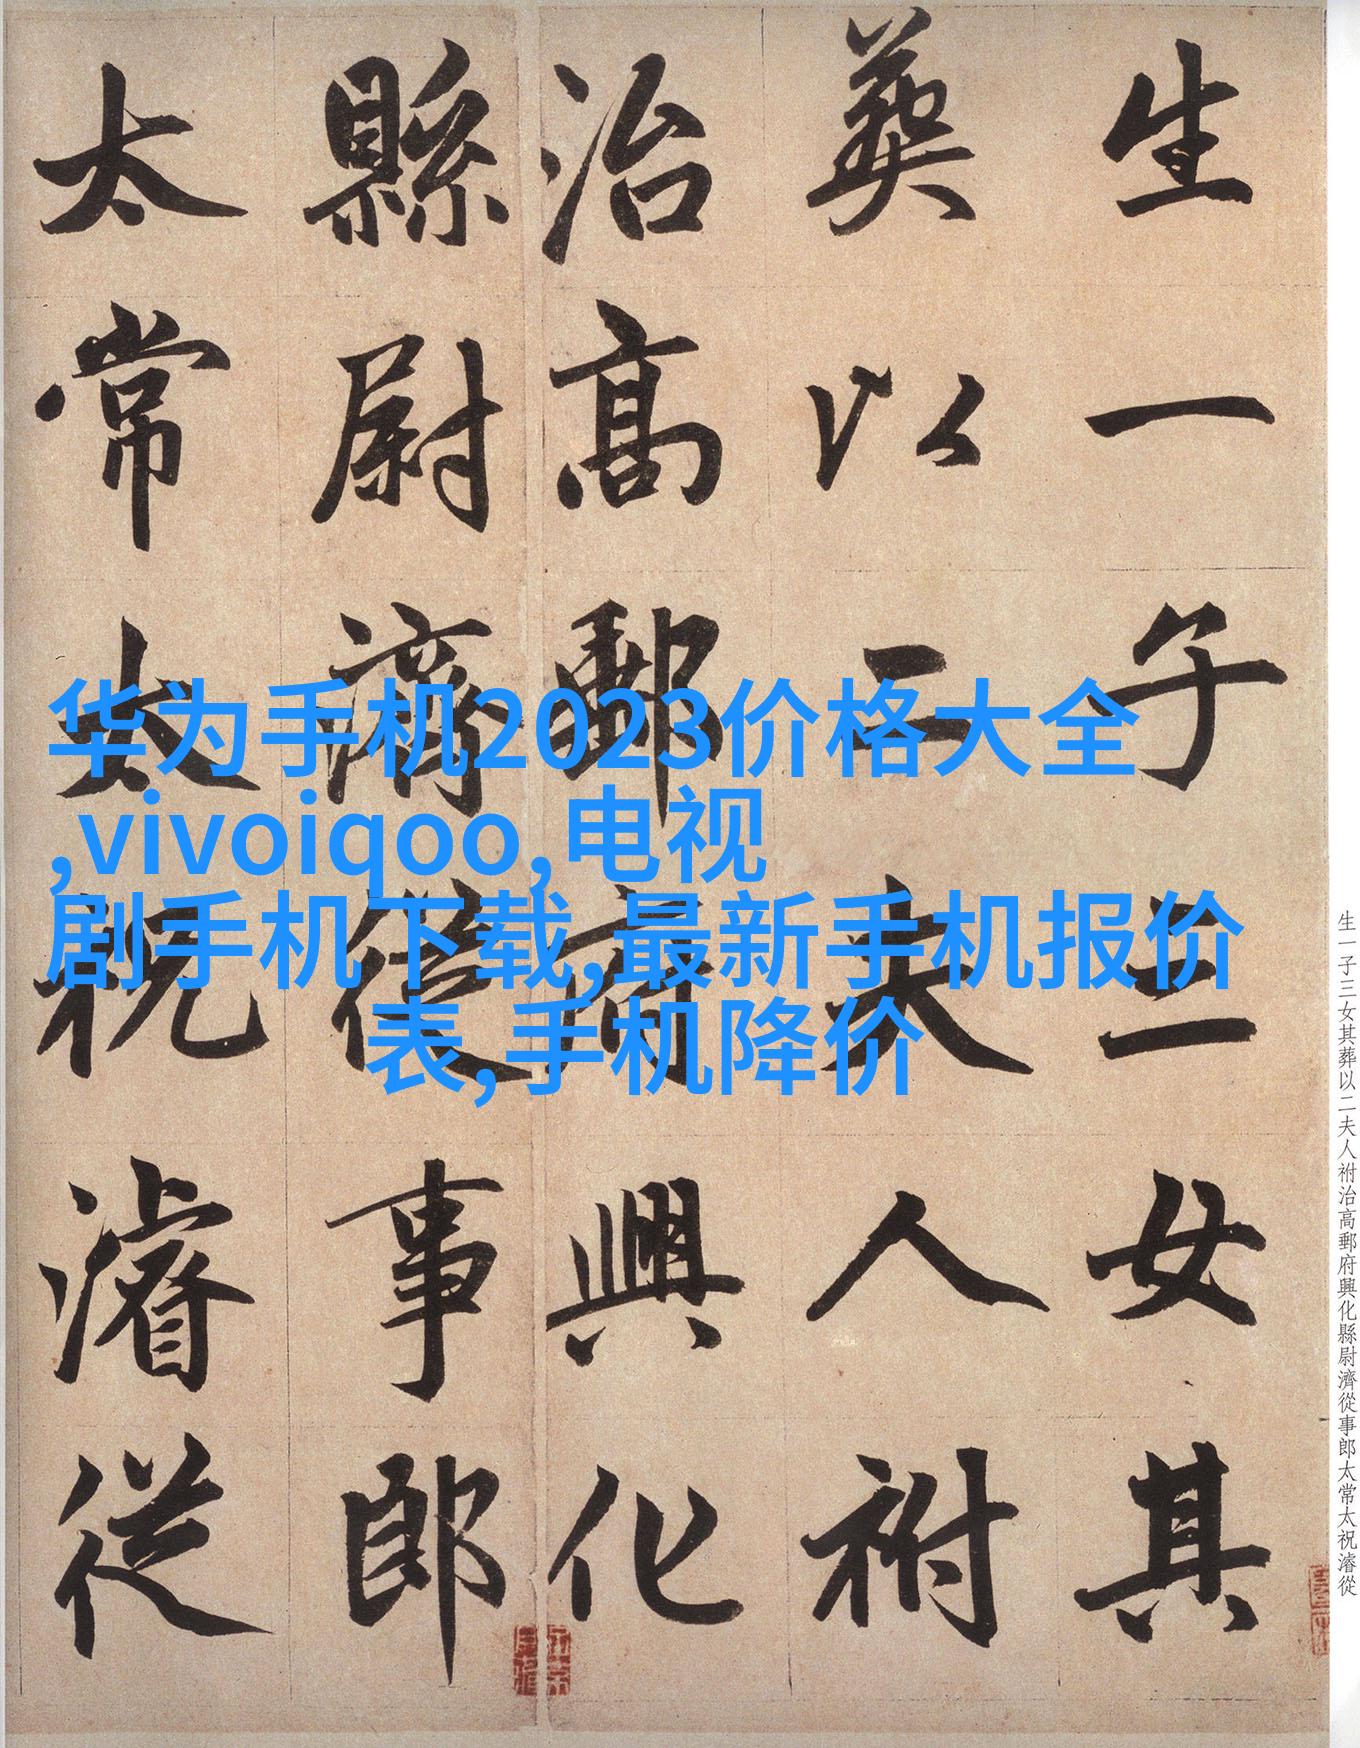 生一子三女其
葬以二夫人祔
治高郵府興化
縣尉濟從事郎
太常太祝濬從
华为手机2023价格大全
,vivoiqoo,电视
剧手机下载,最新手机报价
表,手机降价
生一子三女其葬以二夫人祔治高郵府興化縣尉濟從事郎太常太祝濬從